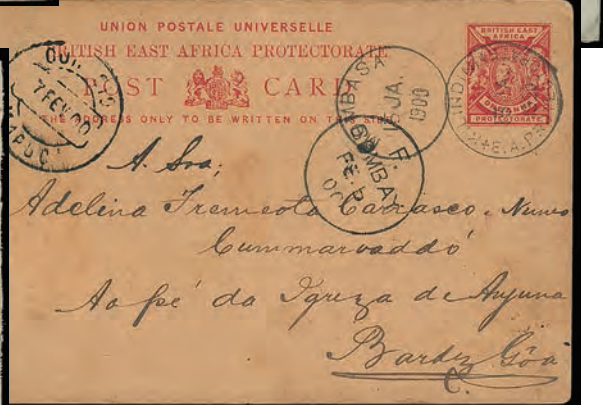 UNION POSTALE UNIVERSELLE
BRITISH EAST AFRICA PROTECTORATE
POST CARD
THE ADDRESS ONLY TO BE WRITTEN ON THIS SIDE
BRITISH EAST AFRICA
ONE ANNA
PROTECTORATE
MOMBASA
JA.
1900
BOMBAY
FE. 2
00
7 FEV 00
E.A.P.
A Sra;
Adelina Carrasco e Nunes
Cummarvaddó
Ao pé da Igreza de Anjuna
Bardez Gôa